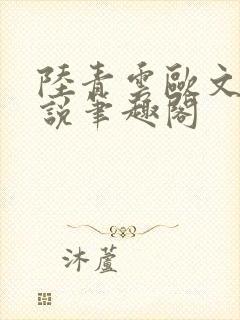 陸青雲歐文
說筆趣閣
沐蘆